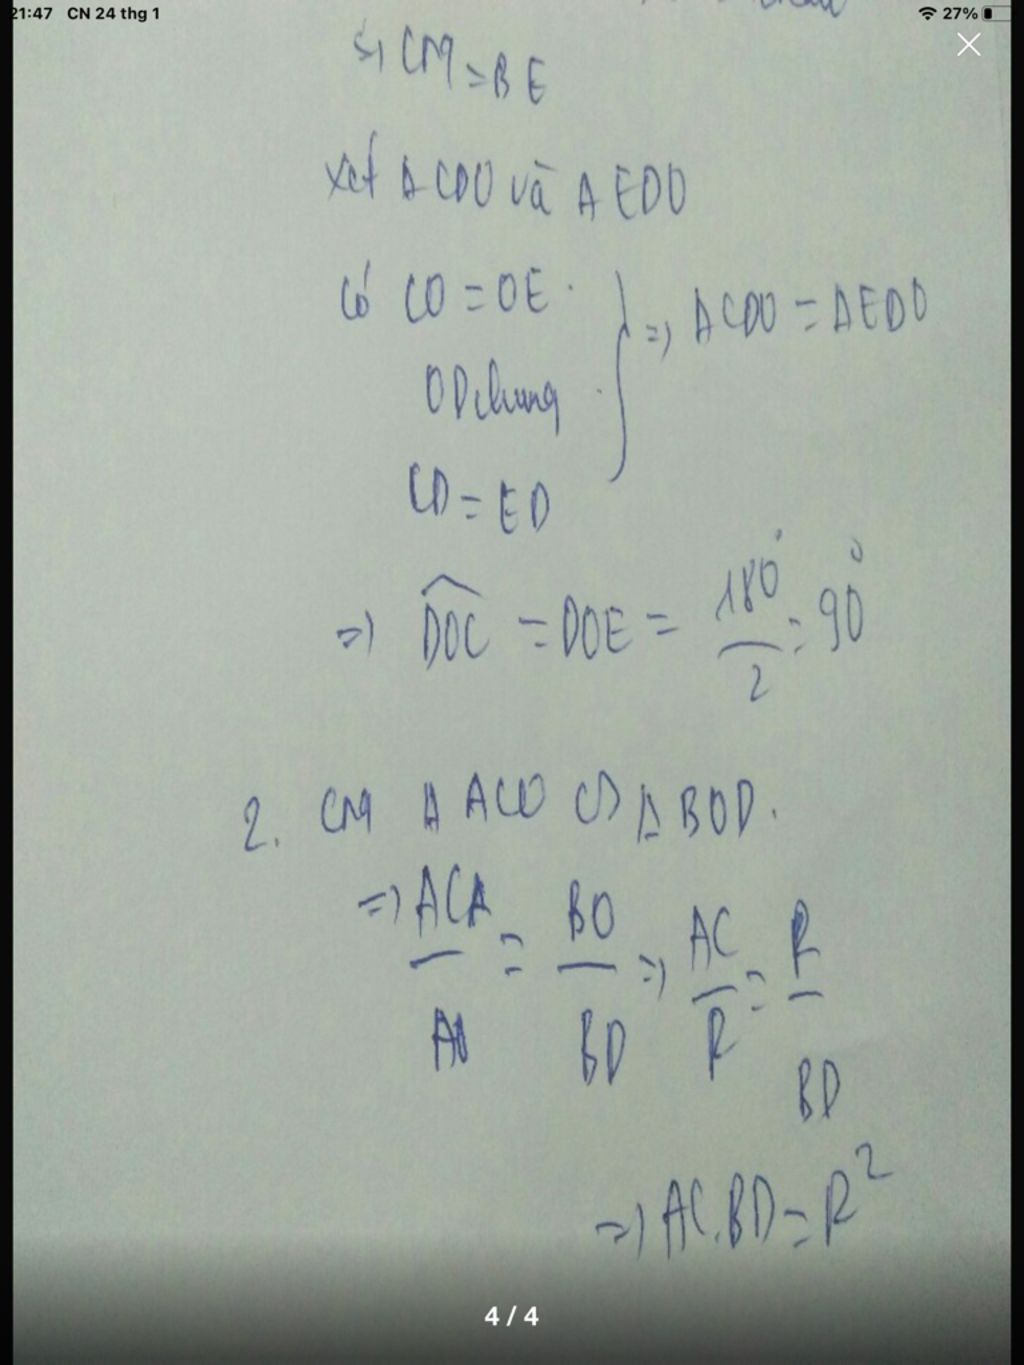 21:47 CN 24 thg 1
27%
=) CM = BE
xét Δ CDO và Δ EDO
có CO = OE
OD chung
CD = ED
=) Δ CDO = Δ EDO
=) DOC = DOE = 180°/2 = 90°
2. CM Δ ACO ∽ Δ BOD.
=) AC/AO = BO/BD =) AC/R = R/BD
=) AC.BD = R²
4 / 4